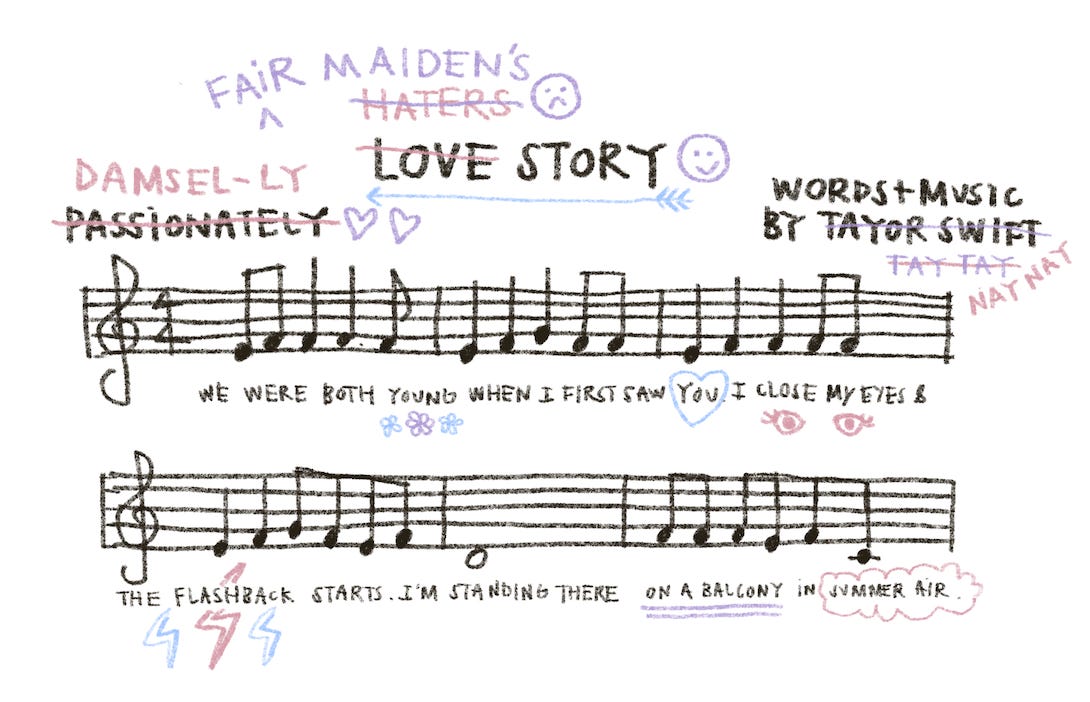 FAIR MAIDEN'S
HATERS
LOVE STORY
DAMSEL-LY
PASSIONATELY
WORDS+MUSIC
BY TAYOR SWIFT
TAY TAY
NAY NAY
4
4
WE WERE BOTH YOUNG WHEN I FIRST SAW YOU. I CLOSE MY EYES &
THE FLASHBACK STARTS. I'M STANDING THERE ON A BALCONY IN SUMMER AIR.